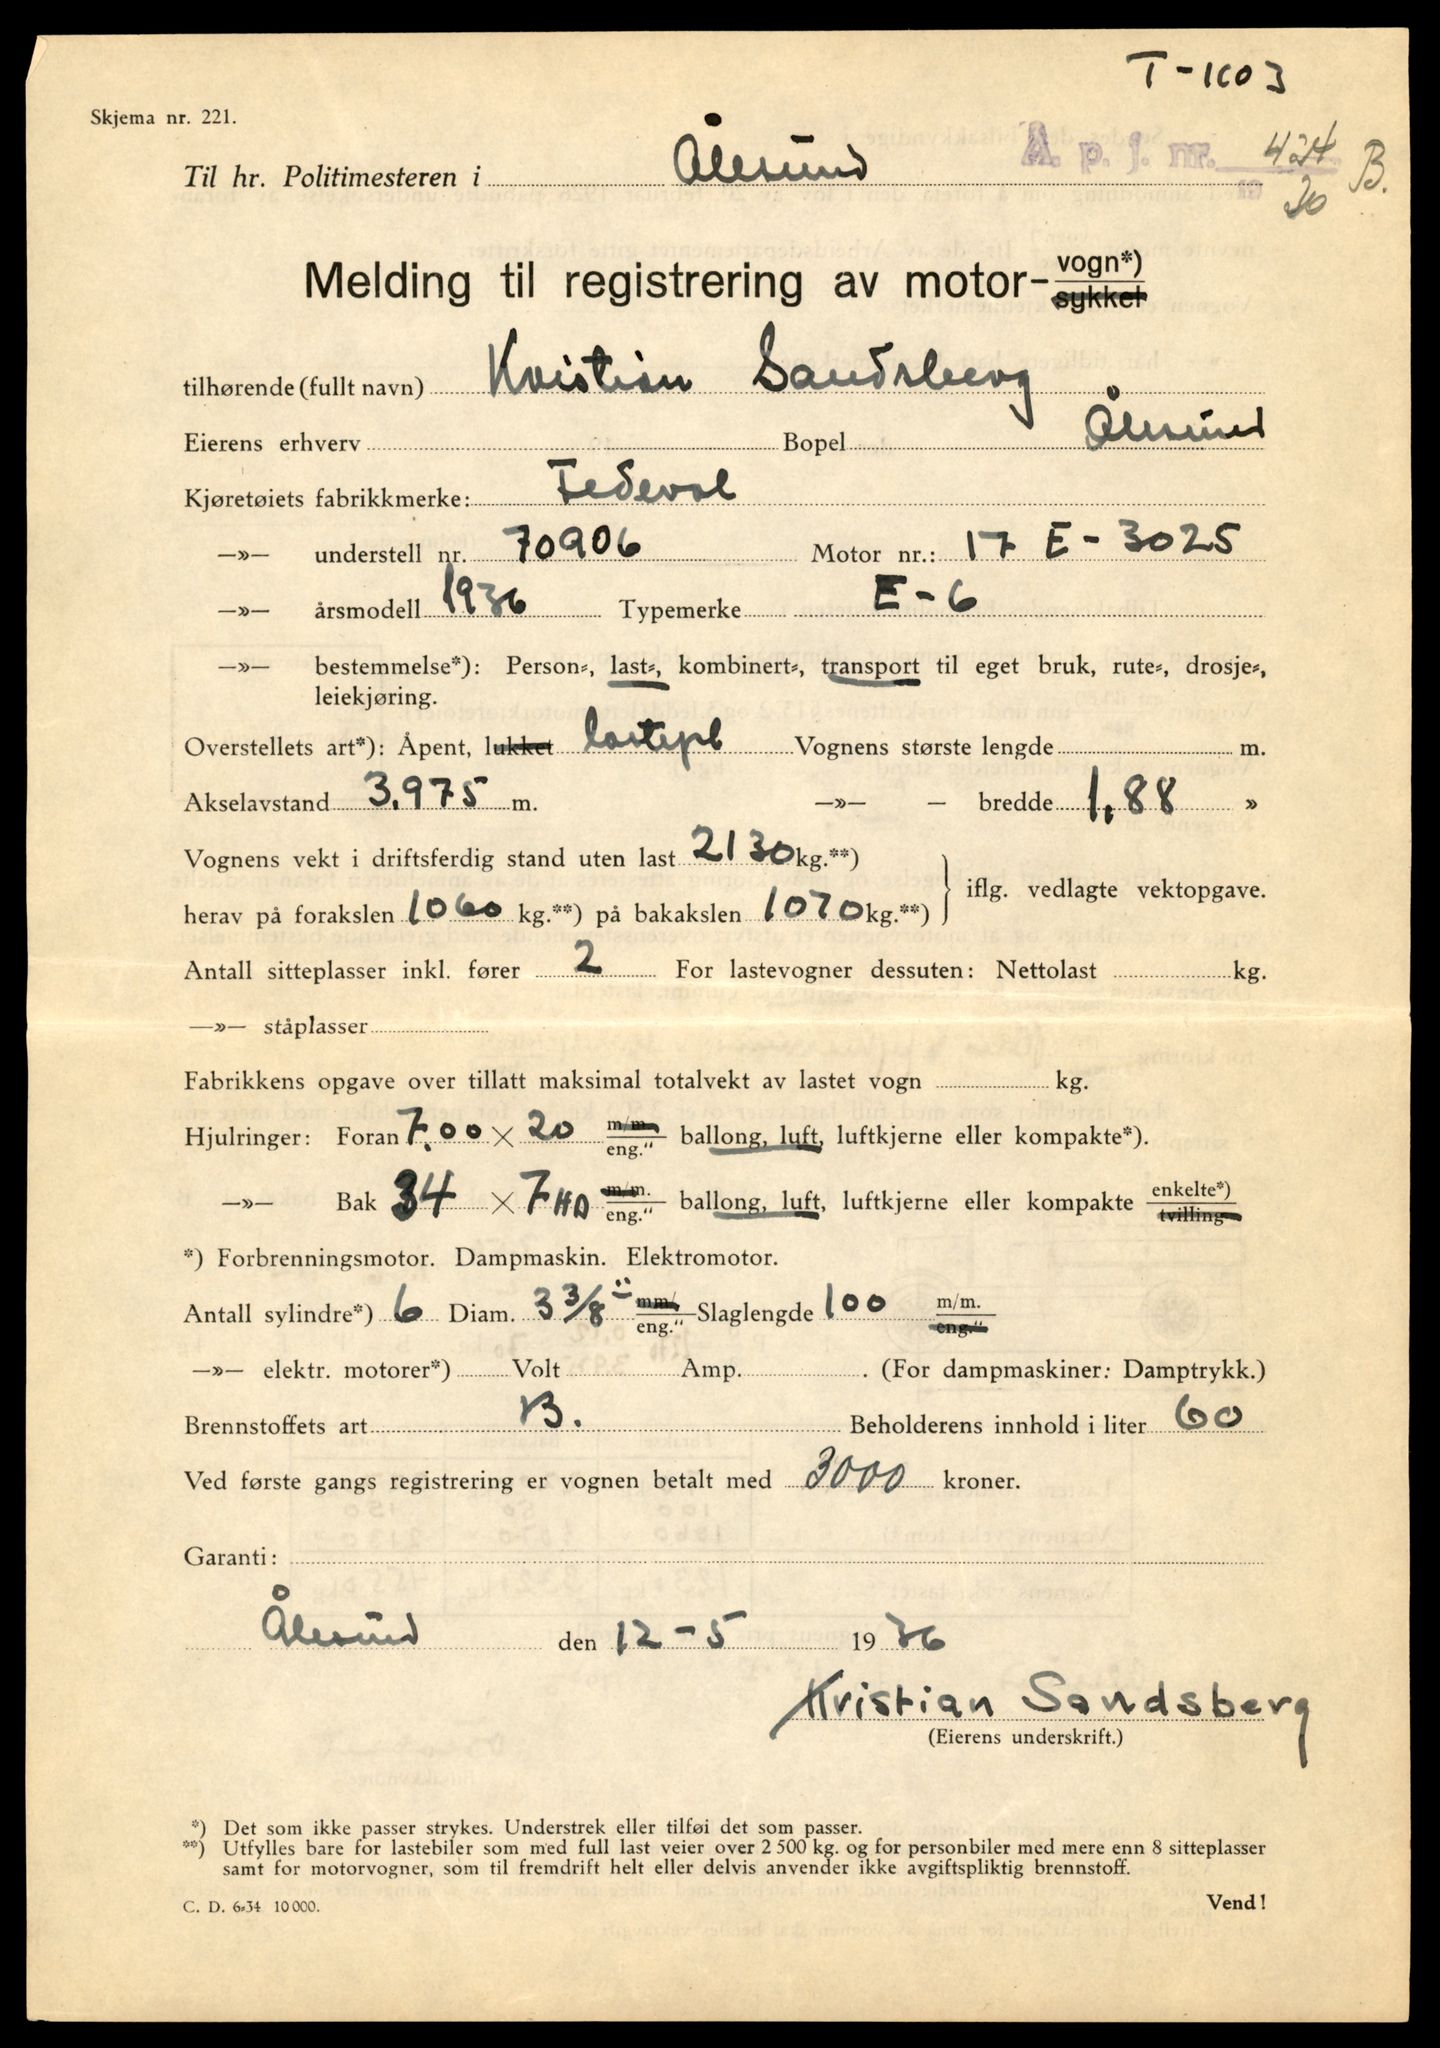 T-1603
Skjema nr. 221.
Til hr. Politimesteren i Ålesund Å. p. j. nr. B.
Melding til registrering av motor- vogn*) sykkel
tilhørende (fullt navn) Kristian Sandsberg
Eierens erhverv Bopel Ålesund
Kjøretøiets fabrikkmerke: Federal
—»— understell nr. 70906 Motor nr.: 17 E-3025
—»— årsmodell 1936 Typemerke E-6
—»— bestemmelse*): Person-, last-, kombinert-, transport til eget bruk, rute-, drosje-,
leiekjøring.
Overstellets art*): Åpent, lukket lastepl Vognens største lengde m.
Akselavstand 3.975 m. —»— — bredde 1,88 »
Vognens vekt i driftsferdig stand uten last 2130 kg.**)
herav på forakslen 1060 kg.**) på bakakslen 1070 kg.**) iflg. vedlagte vektopgave.
Antall sitteplasser inkl. fører 2 For lastevogner dessuten: Nettolast kg.
—»— ståplasser
Fabrikkens opgave over tillatt maksimal totalvekt av lastet vogn kg.
Hjulringer: Foran 7.00 × 20 m/m eng." ballong, luft, luftkjerne eller kompakte*).
—»— Bak 34 × 7 HD m/m. eng." ballong, luft, luftkjerne eller kompakte enkelte*) tvilling
*) Forbrenningsmotor. Dampmaskin. Elektromotor.
Antall sylindre*) 6 Diam. 3 3/8" mm/ eng." Slaglengde 100 m/m. eng."
—»— elektr. motorer*) Volt Amp. . (For dampmaskiner: Damptrykk.)
Brennstoffets art B. Beholderens innhold i liter 60
Ved første gangs registrering er vognen betalt med 3000 kroner.
Garanti:
Ålesund den 12-5 1936
Kristian Sandsberg
(Eierens underskrift.)
*) Det som ikke passer strykes. Understrek eller tilføi det som passer.
**) Utfylles bare for lastebiler som med full last veier over 2 500 kg. og for personbiler med mere enn 8 sitteplasser
samt for motorvogner, som til fremdrift helt eller delvis anvender ikke avgiftspliktig brennstoff.
C. D. 6-34 10 000. Vend!